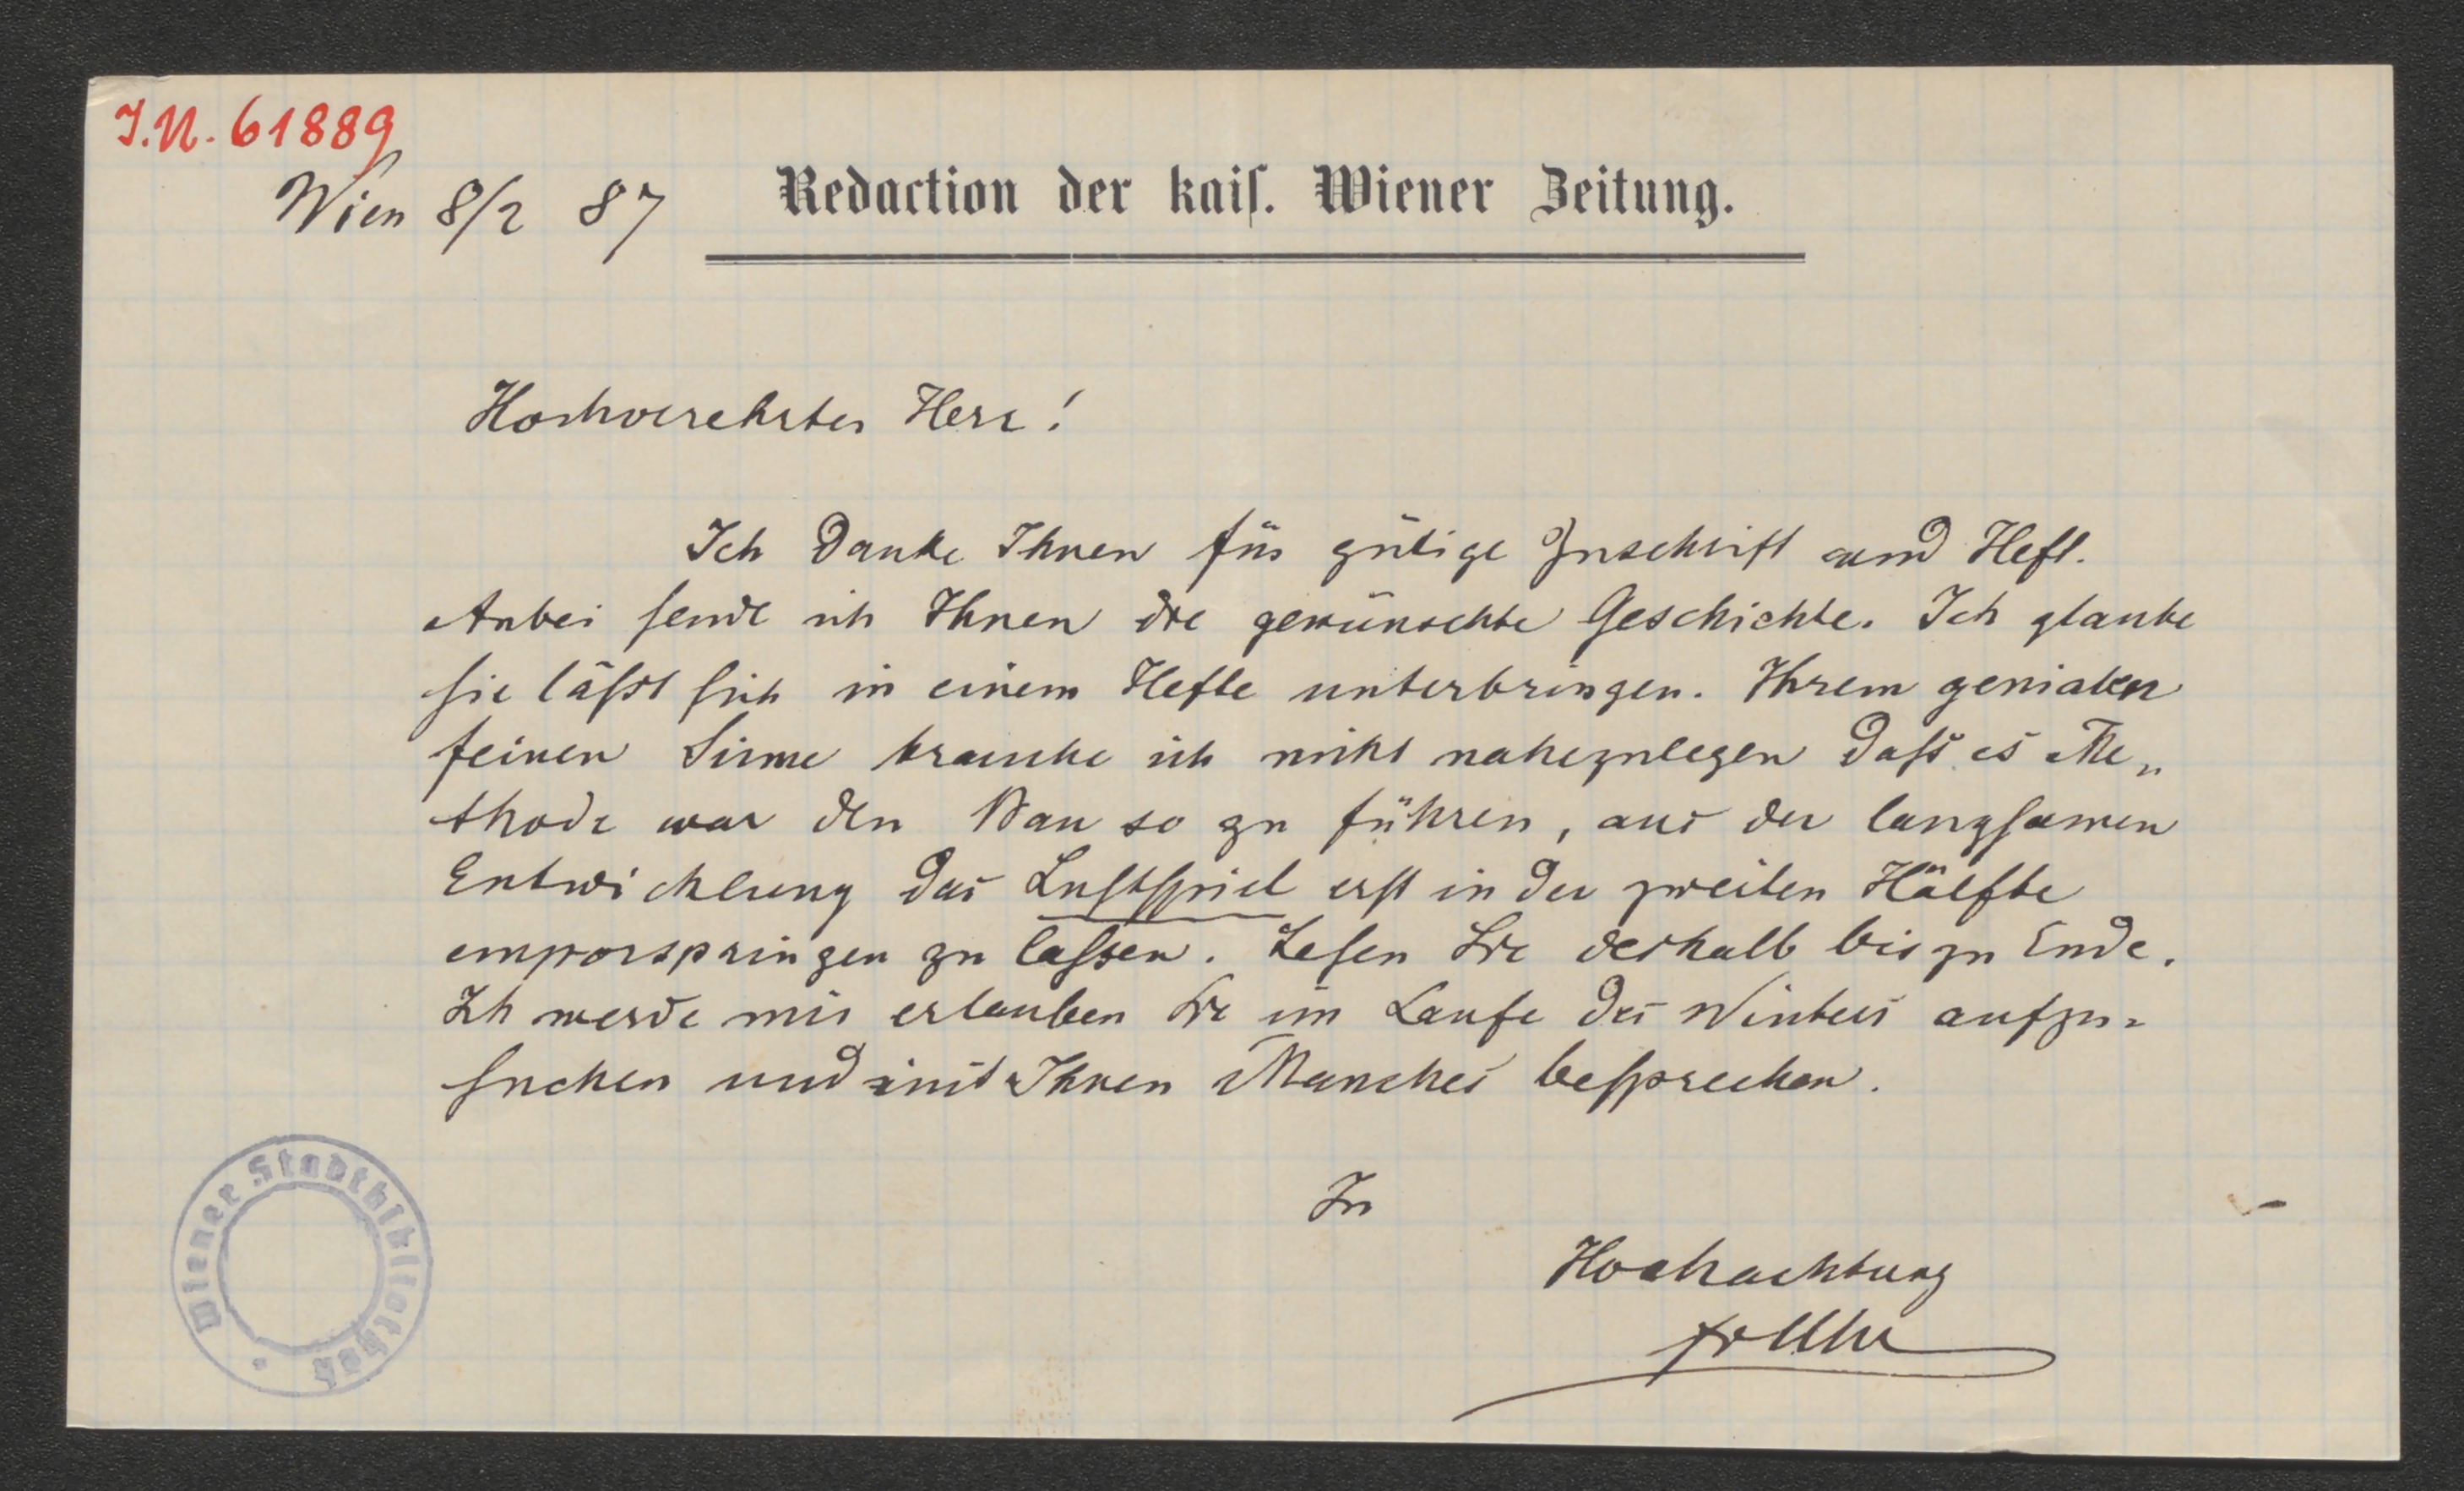 J.N. 61889
Wien 8/2 87 Redaction der kais. Wiener Zeitung.
Hochverehrter Herr!
Ich danke Ihnen für gütige Zuschrift und Heft.
Anbei sende ich Ihnen die gewünschte Geschichte. Ich glaube
sie läßt sich in einem Hefte unterbringen. Ihrem genialen
feinen Sinne brauche ich nicht nahezulegen daß es Me„
thode war den Bau so zu führen, aus der langsamen
Entwicklung das Lustspiel erst in der zweiten Hälfte
emporspringen zu lassen. Lesen Sie deshalb bis zu Ende.
Ich werde mir erlauben Sie im Laufe des Winters aufzu-
suchen und mit Ihnen Manches besprechen.
In
Hochachtung
Wiener Stadtbibliothek